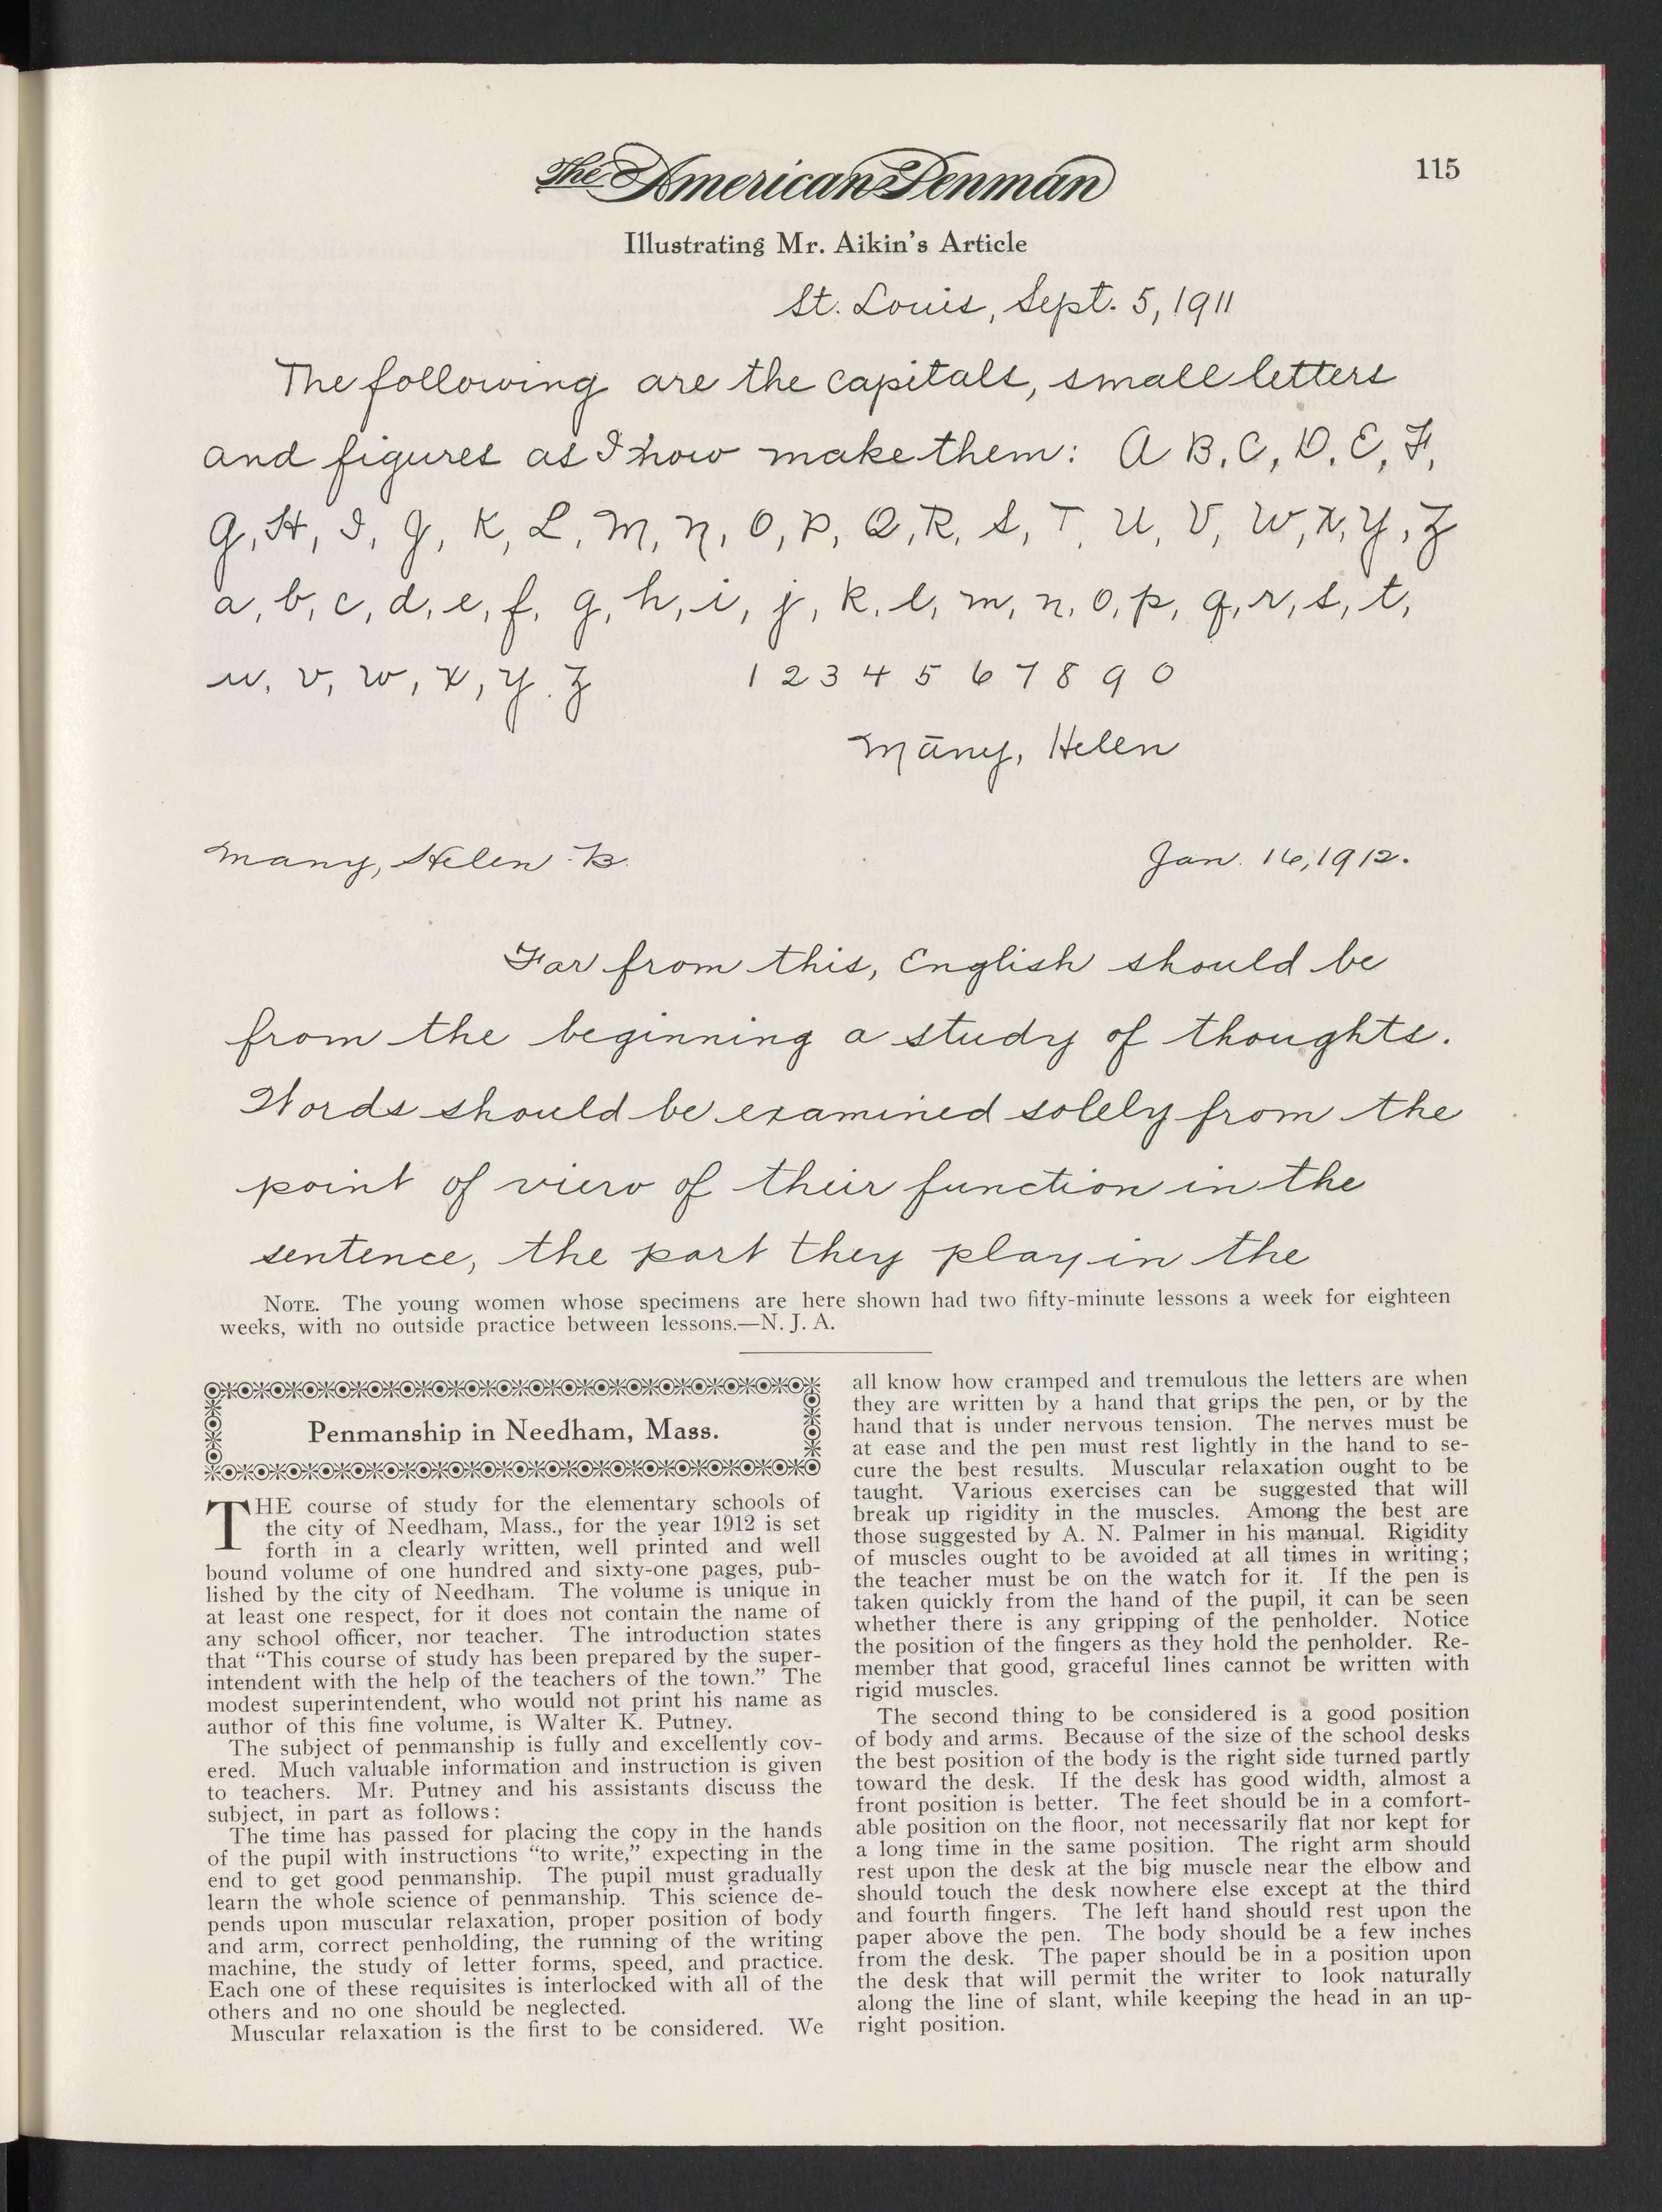 The American Penman
115
Illustrating Mr. Aikin's Article
St. Louis, Sept. 5, 1911
The following are the capitals, small letters
and figures as I now make them: A B, C, D, E, F,
G, H, I, J, K, L, M, N, O, P, Q, R, S, T, U, V, W, X, Y, Z
a, b, c, d, e, f, g, h, i, j, k, l, m, n, o, p, q, r, s, t,
u, v, w, x, y, z 1 2 3 4 5 6 7 8 9 0
Māny, Helen
Many, Helen B. Jan. 16, 1912.
Far from this, English should be
from the beginning a study of thoughts.
Words should be examined solely from the
point of view of their function in the
sentence, the part they play in the
NOTE. The young women whose specimens are here shown had two fifty-minute lessons a week for eighteen
weeks, with no outside practice between lessons.—N. J. A.
Penmanship in Needham, Mass.
THE course of study for the elementary schools of
the city of Needham, Mass., for the year 1912 is set
forth in a clearly written, well printed and well
bound volume of one hundred and sixty-one pages, pub-
lished by the city of Needham. The volume is unique in
at least one respect, for it does not contain the name of
any school officer, nor teacher. The introduction states
that “This course of study has been prepared by the super-
intendent with the help of the teachers of the town.” The
modest superintendent, who would not print his name as
author of this fine volume, is Walter K. Putney.
The subject of penmanship is fully and excellently cov-
ered. Much valuable information and instruction is given
to teachers. Mr. Putney and his assistants discuss the
subject, in part as follows:
The time has passed for placing the copy in the hands
of the pupil with instructions “to write,” expecting in the
end to get good penmanship. The pupil must gradually
learn the whole science of penmanship. This science de-
pends upon muscular relaxation, proper position of body
and arm, correct penholding, the running of the writing
machine, the study of letter forms, speed, and practice.
Each one of these requisites is interlocked with all of the
others and no one should be neglected.
Muscular relaxation is the first to be considered. We
all know how cramped and tremulous the letters are when
they are written by a hand that grips the pen, or by the
hand that is under nervous tension. The nerves must be
at ease and the pen must rest lightly in the hand to se-
cure the best results. Muscular relaxation ought to be
taught. Various exercises can be suggested that will
break up rigidity in the muscles. Among the best are
those suggested by A. N. Palmer in his manual. Rigidity
of muscles ought to be avoided at all times in writing;
the teacher must be on the watch for it. If the pen is
taken quickly from the hand of the pupil, it can be seen
whether there is any gripping of the penholder. Notice
the position of the fingers as they hold the penholder. Re-
member that good, graceful lines cannot be written with
rigid muscles.
The second thing to be considered is a good position
of body and arms. Because of the size of the school desks
the best position of the body is the right side turned partly
toward the desk. If the desk has good width, almost a
front position is better. The feet should be in a comfort-
able position on the floor, not necessarily flat nor kept for
a long time in the same position. The right arm should
rest upon the desk at the big muscle near the elbow and
should touch the desk nowhere else except at the third
and fourth fingers. The left hand should rest upon the
paper above the pen. The body should be a few inches
from the desk. The paper should be in a position upon
the desk that will permit the writer to look naturally
along the line of slant, while keeping the head in an up-
right position.